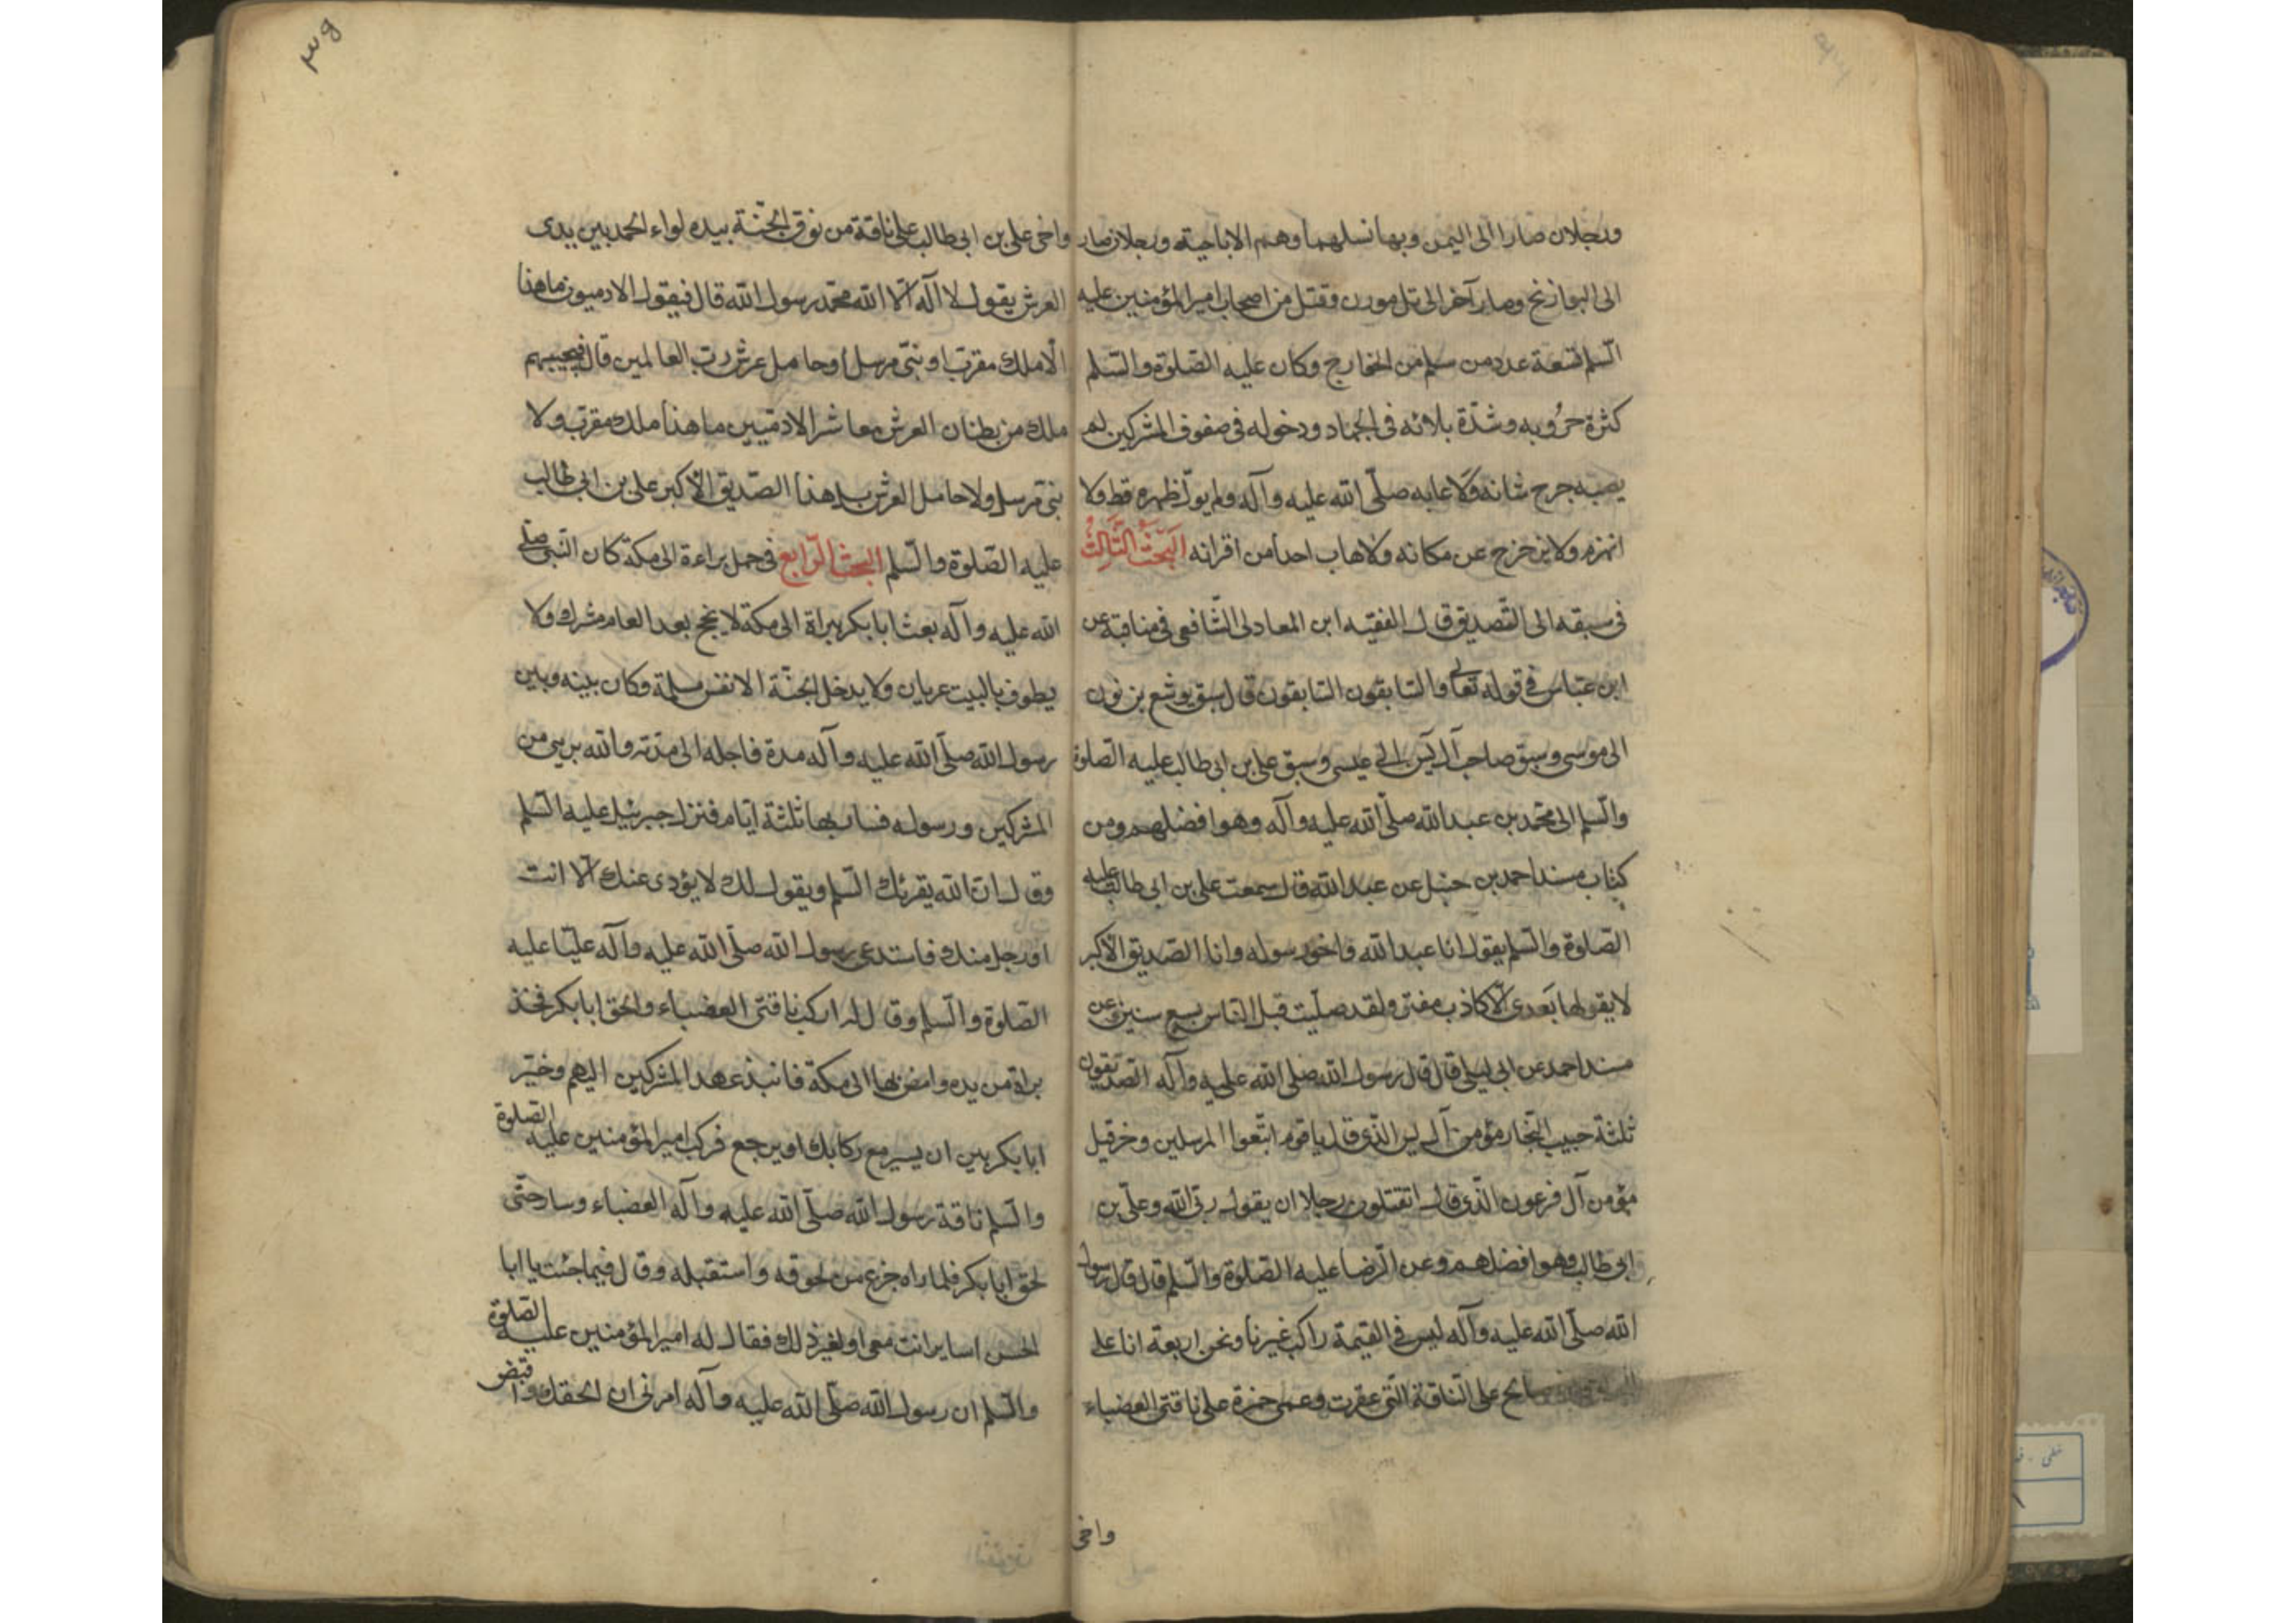 ورجلان صارا الى اليمن وبها نسلهما وهم الاباحية ورجلان صار
الى البوازنج وصار آخر الى تل مورن وقتل من اصحاب امير المؤمنين عليه
السلم تسعة عدد من سلم من الخارج وكان عليه الصلوة والسلم
كثرة حروبه وشدة بلائه فى الجهاد ودخوله فى صفوف المشركين لم
يصبه جرح شانه ولا عابه صلى الله عليه وآله ولم يول ظهره قط ولا
انهزم ولا تزحزح عن مكانه ولا هاب احدا من اقرانه البحث الثالث
فى سبقه الى التصديق قال الفقيه ابن المعادلى الشافعى فى مناقبة عن
ابن عباس فى قوله تعالى والسابقون السابقون قال سبق يوشع بن نون
الى موسى وسبق صاحب آل يس الى عيسى وسبق على بن ابى طالب عليه الصلوة
والسلم الى محمد بن عبد الله صلى الله عليه وآله وهو افضلهم ومن
كتاب مسند احمد بن حنبل عن عبد الله قال سمعت على بن ابى طالب عليه
الصلوة والسلم يقول انا عبد الله واخو رسوله وانا الصديق الاكبر
لا يقولها بعدى الا كاذب مفتر ولقد صليت قبل الناس بسبع سنين وعن
مسند احمد عن ابى ليلى قال قال رسول الله صلى الله عليه وآله الصديقون
ثلثة حبيب النجار مؤمن آل يس الذى قال يا قوم اتبعوا المرسلين وخرقيل
مؤمن آل فرعون الذى قال اتقتلون رجلا ان يقول ربى الله وعلى بن
ابى طالب وهو افضلهم وعن الرضا عليه الصلوة والسلم قال قال رسول
الله صلى الله عليه وآله ليس فى القيمة راكب غيرنا ونحن اربعة انا على
صالح على الناقة التى عقرت وعمى حمزة على ناقتى العضباء
واخى
٣٥
واخى على بن ابى طالب على ناقة من نوق الجنة بيده لواء الحمد بين يدى
العرش يقول لا اله الا الله محمد رسول الله قال فيقول الادميون ما هذا
الا ملك مقرب او نبى مرسل او حامل عرش رب العالمين قال فيجيبهم
ملك من بطنان العرش معاشر الادميين ما هذا ملك مقرب ولا
نبى مرسل ولا حامل العرش بل هذا الصديق الاكبر على بن ابى طالب
عليه الصلوة والسلم البحث الرابع فى حمل براءة الى مكة كان النبى صلى
الله عليه وآله بعث ابا بكر ببراة الى مكة لا يحج بعد العام مشرك ولا
يطوف بالبيت عريان ولا يدخل الجنة الا نفس مسلمة وكان بينه وبين
رسول الله صلى الله عليه وآله مدة فاجله الى مدته والله برىء من
المشركين ورسوله فسار بها ثلثة ايام فنزل جبرئيل عليه السلم
وقال ان الله يقرئك السلم ويقول لك لا يؤدى عنك الا انت
او رجل منك فاستدعى رسول الله صلى الله عليه وآله عليا عليه
الصلوة والسلم وقال له اركب ناقتى العضباء والحق ابا بكر فخذ
براة من يده وامض بها الى مكة فانبذ عهد المشركين اليهم وخير
ابا بكر بين ان يسير مع ركابك او يرجع فركب امير المؤمنين عليه الصلوة
والسلم ناقة رسول الله صلى الله عليه وآله العضباء وسار حتى
لحق ابا بكر فلما راه جزع من لحوقه واستقبله وقال فيما جئت يا ابا
الحسن اساير انت معى او لغير ذلك فقال له امير المؤمنين عليه الصلوة
والسلم ان رسول الله صلى الله عليه وآله امرنى ان الحقك واقبض